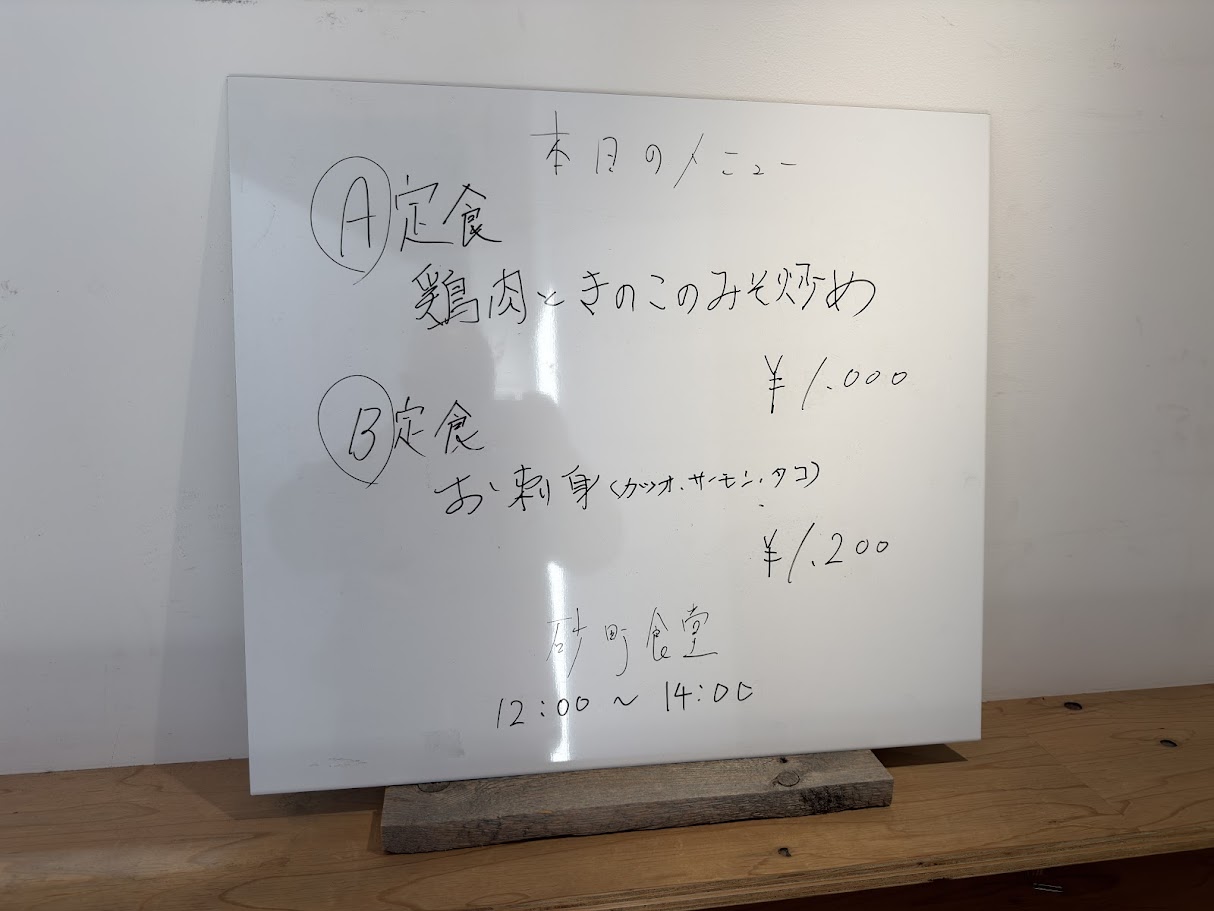 本日のメニュー
Ⓐ定食
鶏肉ときのこのみそ炒め
¥1.000
Ⓑ定食
お刺身(カツオ、サーモン、タコ)
¥1.200
砂町食堂
12:00～14:00